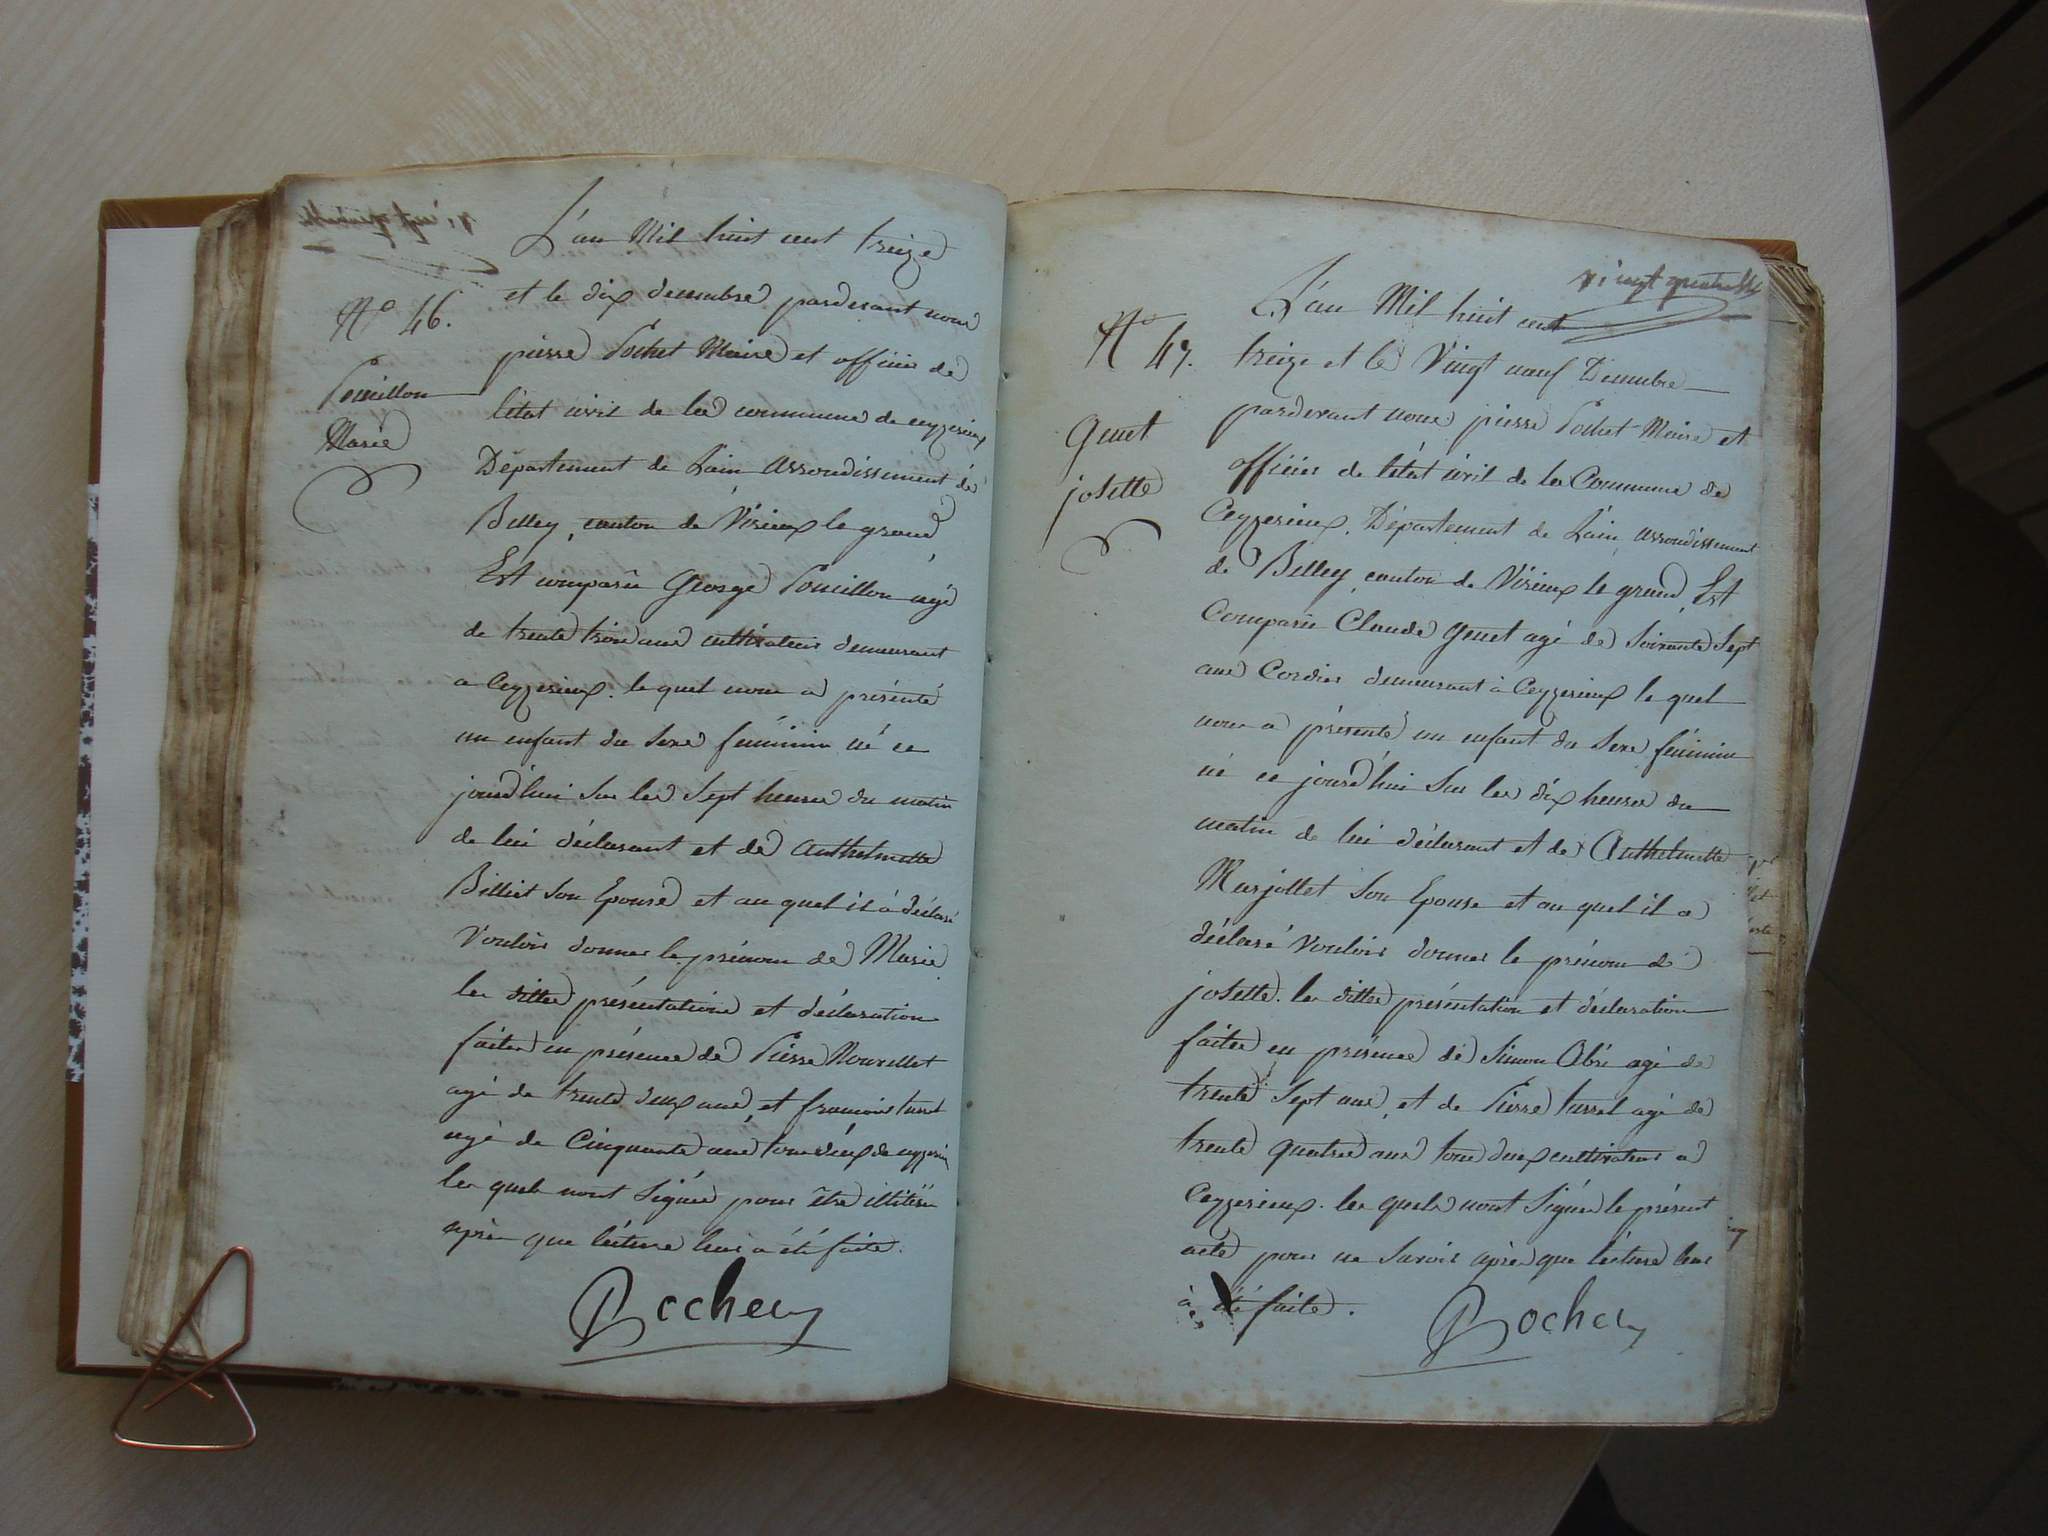 L'an Mil huit cent treize
et le dix decembre pardevant nous
N° 46.
pierre Pochet Maire et officier de
Pouillon
Marie
l'état civil de la commune de ceyzerieux
Département de Lain arrondissement de
Belley, canton de Virieux le grand,
Est comparû George Pouillon agé
de trente trois ans cultivateur demeurant
a Ceyzerieux. le quel nous a présenté
un enfant du sexe féminin né ce
jourd'hui sur les sept heures du matin
de lui déclarant et de Anthelmette
Billiet son Epouse et au quel il à déclaré
Vouloir donner le prénom de Marie
les dittes présentation et déclaration
faites en présence de Pierre Nourellet
agé de trente deux ans, et francois turrel
agé de Cinquante ans tous deux de ceyzerieux
les quels nont signés pour être illitérés
après que lecture leur a été faite.
Pochet
vingt quatre
L'an Mil huit cent
N° 47.
treize et le Vingt neuf Decembre
pardevant nous pierre Pochet Maire et
Genet
josette
officier de l'état civil de la Commune de
Ceyzerieux, Département de Lain, arrondissement
de Belley, canton de Virieux le grand, Est
Comparu Claude Genet agé de soixante sept
ans Cordier demeurant à Ceyzerieux le quel
nous a présenté un enfant du sexe féminin
né ce jourd'hui sur les dix heures du
matin de lui déclarant et de Anthelmette
Marjollet son Epouse et au quel il a
déclaré Vouloir donner le prénom de
josette. les dittes présentation et déclaration
faites en présence de Simon Abri agé de
trente sept ans, et de Pierre turrel agé de
trente quatre ans tous deux cultivateurs a
Ceyzerieux. les quels nont signés le présent
acte pour ne savoir après que lecture leur
à été faite.
Pochet